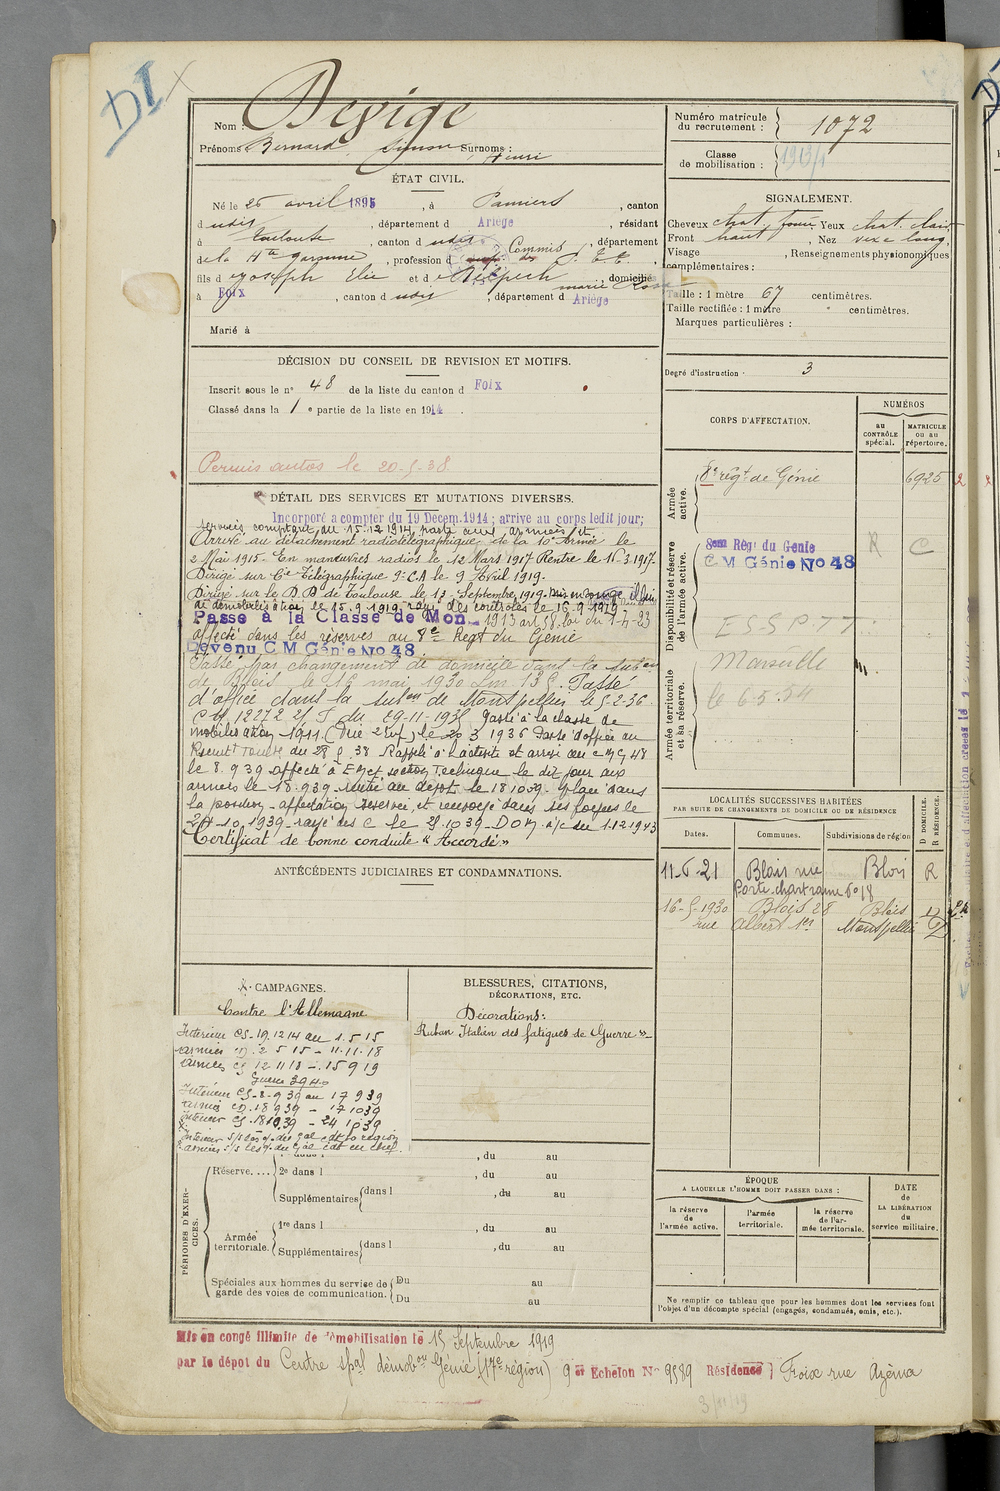 DI
Nom : Dejige
Prénoms : Bernard, Simon, Henri Surnoms :
Numéro matricule du recrutement : 1072
Classe de mobilisation :
ÉTAT CIVIL.
Né le 26 avril 1895, à Pamiers, canton
dudit, département d Ariège, résidant
à Toulouse, canton dudit, département
de la Hte Garonne, profession d Commis des P. T. T.,
fils d Joseph Elie et d Delpech marie Rose, domiciliés
à Foix, canton dudit, département d Ariège
Marié à
SIGNALEMENT.
Cheveux chat. foncé, Yeux chat. clair
Front haut, Nez vexe long
Visage , Renseignements physionomiques
complémentaires :
Taille : 1 mètre 67 centimètres.
Taille rectifiée : 1 mètre " centimètres.
Marques particulières :
Degré d'instruction · 3
DÉCISION DU CONSEIL DE REVISION ET MOTIFS.
Inscrit sous le n° 48 de la liste du canton d Foix
Classé dans la 1e partie de la liste en 1914.
Permis autos le 20-5-38
DÉTAIL DES SERVICES ET MUTATIONS DIVERSES.
Incorporé a compter du 19 Decem.1914; arrivé au corps ledit jour;
services comptant du 15.12.1914, parti aux armées et
Arrivé au détachement radiotélégraphique de la 10e Armée le
2 Mai 1915. En manœuvres radios le 12 Mars 1917 Rentré le 16-3-1917.
Dirigé sur Cie Télégraphique 9e C.A le 9 Avril 1919.
Dirigé sur le D.D. de Toulouse le 13 Septembre 1919. Mis en congé illim
de démobilisation le 15.9.1919 rayé des contrôles le 16.9.1919
Passé à la Classe de Mon 1913 art 58 loi du 1-4-23
affecté dans les réserves au 8e Regt du Génie
Devenu C M Génie No 48
Passé par changement de domicile dans la subon
de Blois le 16 mai 1930
Passé
d'office dans la subon de Montpellier le 5-2-36.
CM 12272 2/ J du 29-11-1935 passé à la classe de
mobilisation 1911 (Père 2 enf) le 20 3 1936 Passé d'office au
Recrutt Toulse du 28 5 38 Rappelé à l'activité et arrivé au CMG 48
le 8.9.39 affecté à section Technique le dit jour aux
armées le 18.9.39 muté au dépôt le 18 10 39. Placé dans
la position affectation réservée et renvoyé dans ses foyers le
24-10-1939 rayé des C le 25 10 39
Certificat de bonne conduite « Accordé »
CORPS D'AFFECTATION.
NUMÉROS
au CONTRÔLE spécial.
MATRICULE ou au répertoire.
Armée active.
8e régt de Génie 6925
Disponibilité et réserve de l'armée active.
8eme Régt du Genie R C
C M Génie No 48
E S S P T T
Armée territoriale et sa réserve.
Marseille
le 6.5.54
LOCALITÉS SUCCESSIVES HABITÉES
PAR SUITE DE CHANGEMENTS DE DOMICILE OU DE RÉSIDENCE
Dates. Communes. Subdivisions de région D DOMICILE. R RÉSIDENCE.
11-6-21 Blois rue Blois R
Porte chartraine No 18
16-5-1930 Blois 28 Blois D
rue Albert 1er Montpellier
ANTÉCÉDENTS JUDICIAIRES ET CONDAMNATIONS.
CAMPAGNES.
Contre l'Allemagne
Intérieur CS-19.12 14 au 1.5 15
armées CD. 2 5 15 - 11.11.18
armées CS 12 11 18 - 15 9 19
Guerre 39 40
Intérieur CS-8-9 39 au 17 9 39
armées CD.18 9 39 - 17 10 39
intérieur CS.18 10 39 - 24 10 39
BLESSURES, CITATIONS,
DÉCORATIONS, ETC.
Décorations :
Ruban Italien des fatigues de Guerre »
PÉRIODES D'EXERCICES.
, du au
Réserve.... 2e dans l , du au
Supplémentaires dans l , du au
Armée territoriale. 1re dans l , du au
Supplémentaires dans l , du au
Spéciales aux hommes du service de garde des voies de communication. Du au
Du au
ÉPOQUE
A LAQUELLE L'HOMME DOIT PASSER DANS :
la réserve de l'armée active.
l'armée territoriale.
la réserve de l'armée territoriale.
DATE de LA LIBÉRATION du service militaire.
Ne remplir ce tableau que pour les hommes dont les services font
l'objet d'un décompte spécial (engagés, condamnés, omis, etc.).
Mis en congé illimité de démobilisation le 15 Septembre 1919
par le dépôt du Centre spal démobon Génie (17e région) 9 er Echelon No 9589 Résidence : Foix rue Azéma